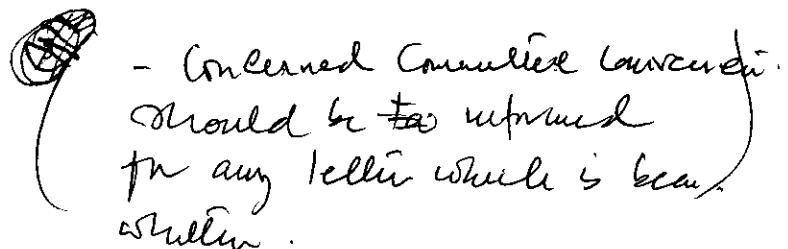 - Concerned Committee Convenor.
should be informed
for any letter which is been
written.